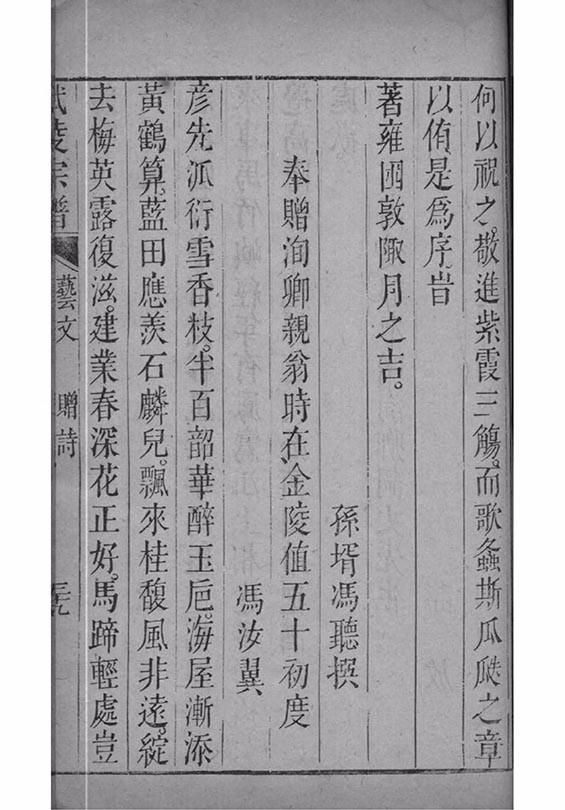 何以祝之。敬進紫霞三觴。而歌螽斯瓜瓞之章
以侑是爲序。旹
著雍困敦陬月之吉。
孫壻馮聽撰
奉贈洵卿親翁時在金陵值五十初度
馮汝翼
彦先派衍雪香枝。半百韶華醉玉巵。海屋漸添
黃鶴算。藍田應羨石麟兒。飄來桂馥風非遠。綻
去梅英露復滋。建業春深花正好。馬蹄輕處豈
宗譜 藝文 贈詩